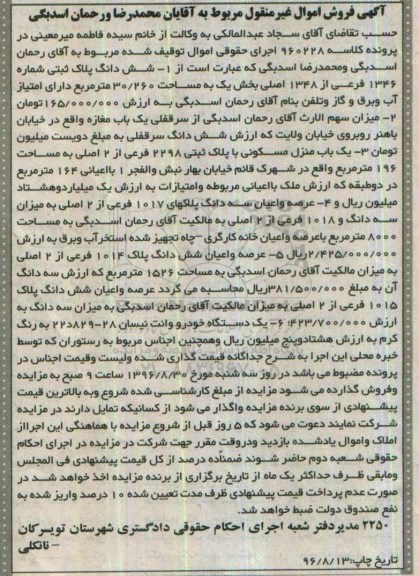 آگهی فروش اموال غیرمنقول مربوط به آقایان محمدرضا ورحمان اسدبگی
حسب تقاضای آقای سجاد عبدالمالکی به وکالت از خانم سیده فاطمه میرمعینی در
پرونده کلاسه ۹۶۰۲۲۸ اجرای حقوقی اموال توقیف شده مربوط به آقای رحمان
اسدبگی ومحمدرضا اسدبگی که عبارت است از ۱- شش دانگ پلاک ثبتی شماره
۱۳۴۶ فرعی از ۱۳۴۸ اصلی بخش یک به مساحت ۳۰/۲۶۰ مترمربع دارای امتیاز
آب وبرق و گاز وتلفن بنام آقای رحمان اسدبگی به ارزش ۱۶۵/۰۰۰/۰۰۰تومان
۲- میزان سهم الارث آقای رحمان اسدبگی از سرقفلی یک باب مغازه واقع در خیابان
باهنر روبروی خیابان ولایت که ارزش شش دانگ سرقفلی به مبلغ دویست میلیون
تومان ۳- یک باب منزل مسکونی با پلاک ثبتی ۲۲۹۸ فرعی از ۲ اصلی به مساحت
۱۹۶ مترمربع واقع در شهرک قائم خیابان بهار نبش والفجر ۱ بااعیانی ۱۶۴ مترمربع
در دوطبقه که ارزش ملک بااعیانی مربوطه وامتیازات به ارزش یک میلیاردوهشتاد
میلیون ریال و ۴- عرصه واعیان سه دانگ پلاکهای ۱۰۱۷ فرعی از ۲ اصلی به میزان
سه دانگ و ۱۰۱۸ فرعی از ۲ اصلی به مالکیت آقای رحمان اسدبگی به مساحت
۸۰۰۰ مترمربع باعرصه واعیان خانه کارگری -چاه تجهیز شده استخرآب وبرق به ارزش
۲/۴۲۵/۰۰۰/۰۰۰ریال ۵- عرصه واعیان شش دانگ پلاک ۱۰۱۴ فرعی از ۲ اصلی
به میزان مالکیت آقای رحمان اسدبگی به مساحت ۱۵۲۶ مترمربع که ارزش سه دانگ
آن به مبلغ ۳۸۱/۵۰۰/۰۰۰ریال محاسبه می گردد عرصه واعیان شش دانگ پلاک
۱۰۱۵ فرعی از ۲ اصلی به میزان مالکیت آقای رحمان اسدبگی به میزان سه دانگ به
ارزش ۴۲۳/۷۰۰/۰۰۰؛ ۶- یک دستگاه خودرو وانت نیسان ۲۸-۸۲۹د۲۲ به رنگ
کرم به ارزش هشتادوپنج میلیون ریال وهمچنین اجناس مربوط به رستوران که توسط
خبره محلی این اجرا به شرح جداگانه قیمت گذاری شده ولیست وقیمت اجناس در
پرونده مضبوط می باشد در روز سه شنبه مورخ ۱۳۹۶/۸/۳۰ ساعت ۹ صبح به مزایده
وفروش گذارده می شود مزایده از مبلغ کارشناسی شده شروع وبه بالاترین قیمت
پیشنهادی از سوی برنده مزایده واگذار می شود از کسانیکه تمایل دارند در مزایده
شرکت نمایند دعوت می شود که ۵ روز قبل از شروع مزایده با هماهنگی این اجرااز
املاک واموال یادشده بازدید ودروقت مقرر جهت شرکت در مزایده در اجرای احکام
حقوقی شعبه دوم حاضر شوند ضمناًده درصد از کل قیمت پیشنهادی فی المجلس
ومابقی ظرف حداکثر یک ماه از تاریخ برگزاری از برنده مزایده اخذ خواهد شد در
صورت عدم پرداخت قیمت پیشنهادی ظرف مدت تعیین شده ۱۰ درصد واریز شده به
نفع صندوق دولت ضبط خواهد شد.
۲۲۵۰ مدیردفتر شعبه اجرای احکام حقوقی دادگستری شهرستان تویسرکان
- نانکلی
تاریخ چاپ:۹۶/۸/۱۳